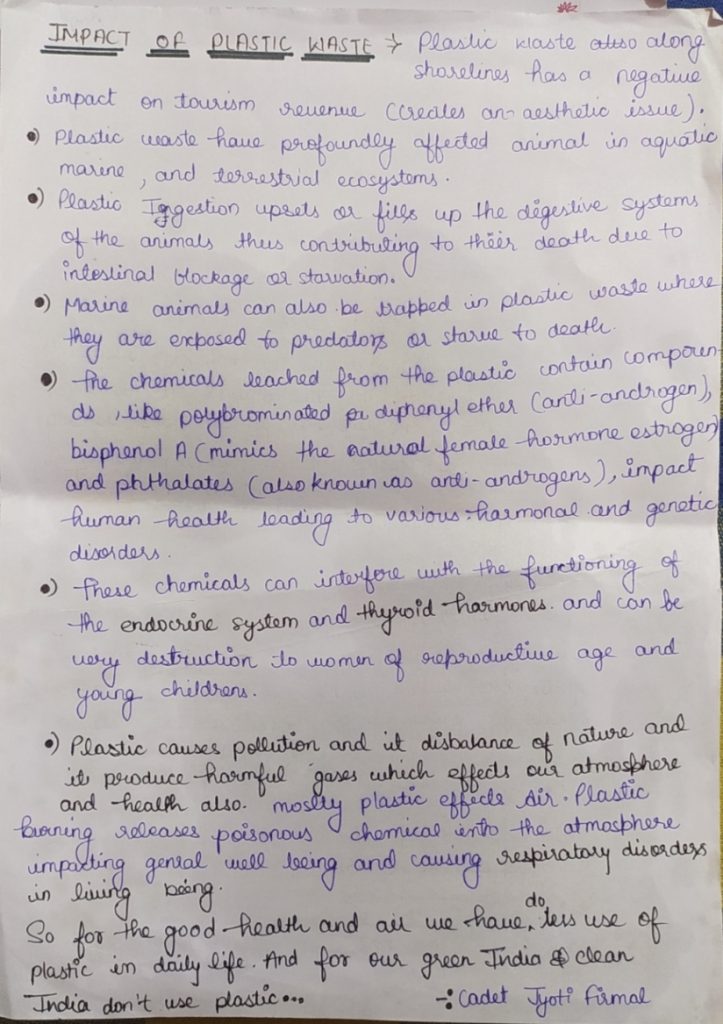 IMPACT OF PLASTIC WASTE → Plastic waste also along
shorelines has a negative
impact on tourism revenue (creates an aesthetic issue).
•) Plastic waste have profoundly affected animal in aquatic
marine, and terrestrial ecosystems.
•) Plastic Ingestion upsets or fills up the digestive systems
of the animals thus contributing to their death due to
intestinal blockage or starvation.
•) Marine animals can also be trapped in plastic waste where
they are exposed to predators or starve to death.
•) The chemicals leached from the plastic contain compoun-
ds, like polybrominated diphenyl ether (anti-androgen),
bisphenol A (mimics the natural female hormone estrogen)
and phthalates (also known as anti-androgens), impact
human health leading to various harmonal and genetic
disorders.
•) These chemicals can interfere with the functioning of
the endocrine system and thyroid harmones. and can be
very destruction to women of reproductive age and
young childrens.
•) Plastic causes pollution and it disbalance of nature and
it produce harmful gases which effects our atmosphere
and health also. mostly plastic effects Air. Plastic
burning releases poisonous chemical into the atmosphere
impacting genral well being and causing respiratory disorders
in living being.
So for the good health and air we have do less use of
plastic in daily life. And for our green India & clean
India don't use plastic...
-: Cadet Jyoti Firmal